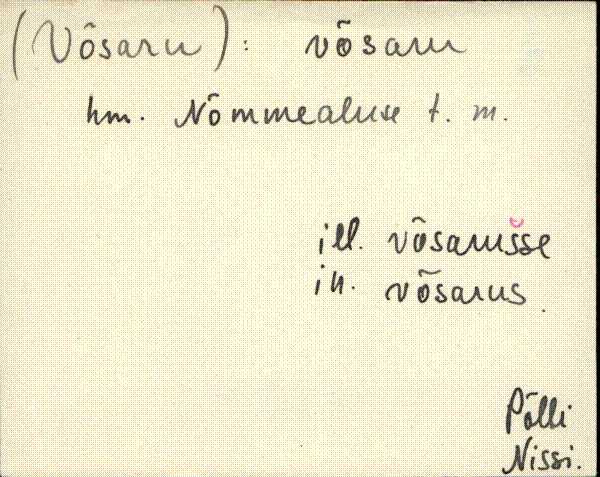 (Võsaru): võsaru
hm. Nõmmealuse t. m.
ill. võsarusse
in. võsarus.
Põlli
Nissi.